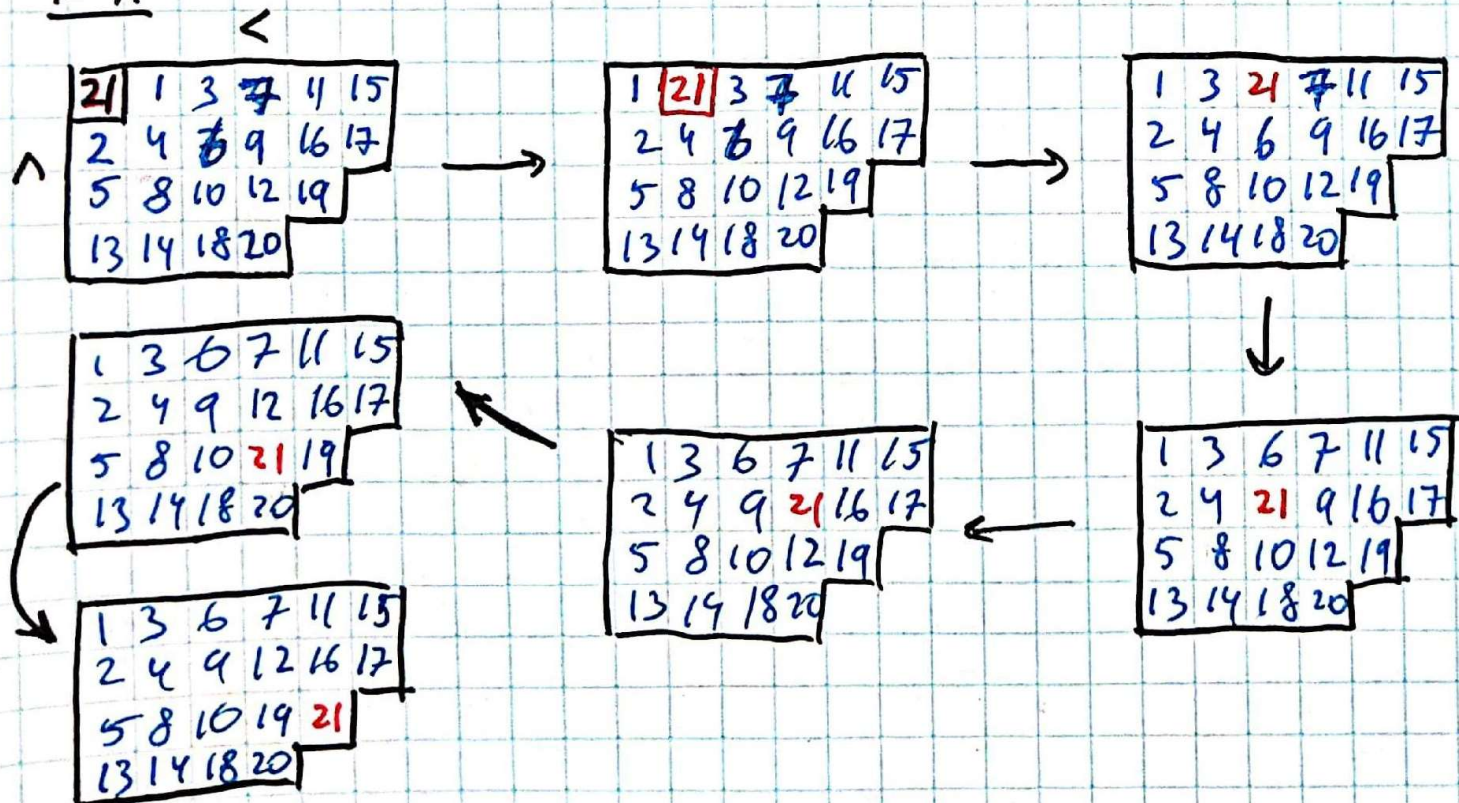 <
21 1 3 7 11 15
2 4 6 9 16 17
5 8 10 12 19
13 14 18 20
^
1 21 3 7 11 15
2 4 6 9 16 17
5 8 10 12 19
13 14 18 20
1 3 21 7 11 15
2 4 6 9 16 17
5 8 10 12 19
13 14 18 20
1 3 6 7 11 15
2 4 21 9 16 17
5 8 10 12 19
13 14 18 20
1 3 6 7 11 15
2 4 9 21 16 17
5 8 10 12 19
13 14 18 20
1 3 6 7 11 15
2 4 9 12 16 17
5 8 10 21 19
13 14 18 20
1 3 6 7 11 15
2 4 9 12 16 17
5 8 10 19 21
13 14 18 20